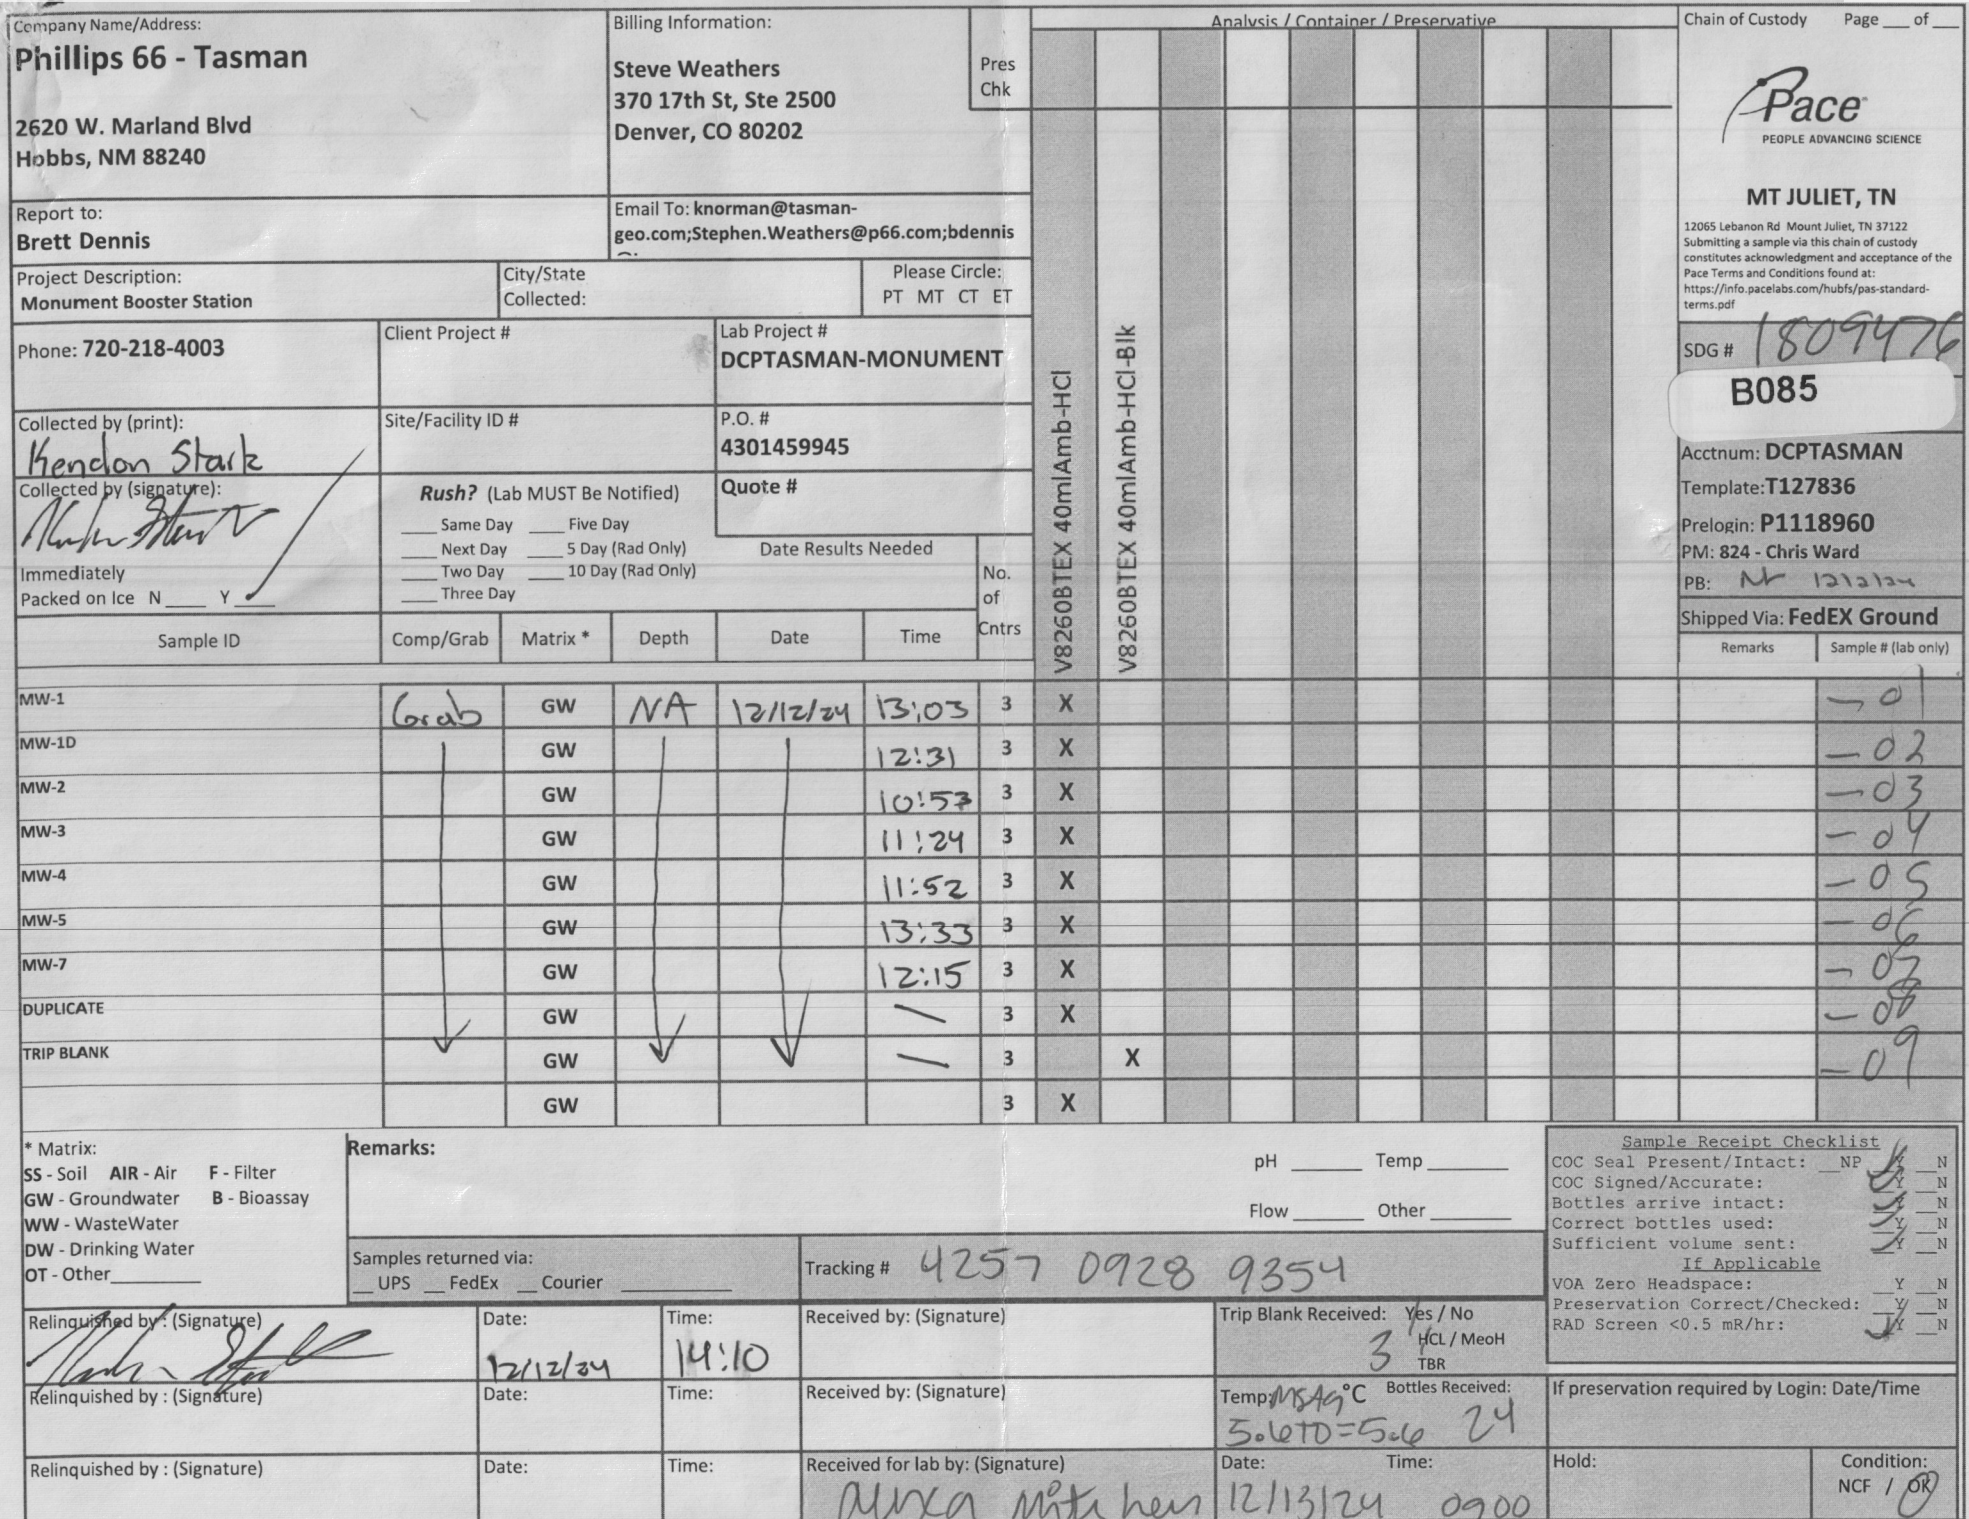 Company Name/Address:
Phillips 66 - Tasman
2620 W. Marland Blvd
Hobbs, NM 88240
Billing Information:
Steve Weathers
370 17th St, Ste 2500
Denver, CO 80202
Pres
Chk
Analysis / Container / Preservative
Chain of Custody Page ___ of ___
Pace
PEOPLE ADVANCING SCIENCE
MT JULIET, TN
12065 Lebanon Rd Mount Juliet, TN 37122
Submitting a sample via this chain of custody
constitutes acknowledgment and acceptance of the
Pace Terms and Conditions found at:
https://info.pacelabs.com/hubfs/pas-standard-
terms.pdf
Report to:
Brett Dennis
Email To: knorman@tasman-
geo.com;Stephen.Weathers@p66.com;bdennis
Project Description:
Monument Booster Station
City/State
Collected:
Please Circle:
PT MT CT ET
Phone: 720-218-4003
Client Project #
Lab Project #
DCPTASMAN-MONUMENT
SDG # 1809476
B085
Collected by (print):
Kendon Stark
Site/Facility ID #
P.O. #
4301459945
Acctnum: DCPTASMAN
Template: T127836
Prelogin: P1118960
PM: 824 - Chris Ward
PB: 12/2/24
Shipped Via: FedEX Ground
Collected by (signature):
Rush? (Lab MUST Be Notified)
___ Same Day ___ Five Day
___ Next Day ___ 5 Day (Rad Only)
___ Two Day ___ 10 Day (Rad Only)
___ Three Day
Quote #
Date Results Needed
Immediately
Packed on Ice N ___ Y ___
No.
of
Cntrs
V8260BTEX 40mlAmb-HCl
V8260BTEX 40mlAmb-HCl-Blk
Sample ID Comp/Grab Matrix * Depth Date Time Remarks Sample # (lab only)
MW-1 Grab GW NA 12/12/24 13:03 3 X -01
MW-1D GW 12:31 3 X -02
MW-2 GW 10:57 3 X -03
MW-3 GW 11:24 3 X -04
MW-4 GW 11:52 3 X -05
MW-5 GW 13:33 3 X -06
MW-7 GW 12:15 3 X -07
DUPLICATE GW 3 X -08
TRIP BLANK GW 3 X -09
GW 3 X
* Matrix:
SS - Soil AIR - Air F - Filter
GW - Groundwater B - Bioassay
WW - WasteWater
DW - Drinking Water
OT - Other
Remarks:
pH ___ Temp ___
Flow ___ Other ___
Sample Receipt Checklist
COC Seal Present/Intact: __NP __Y __N
COC Signed/Accurate: __Y __N
Bottles arrive intact: __Y __N
Correct bottles used: __Y __N
Sufficient volume sent: __Y __N
If Applicable
VOA Zero Headspace: __Y __N
Preservation Correct/Checked: __Y __N
RAD Screen <0.5 mR/hr: __Y __N
Samples returned via:
__ UPS __ FedEx __ Courier
Tracking # 4257 0928 9354
Relinquished by : (Signature)
Date:
12/12/24
Time:
14:10
Received by: (Signature)
Trip Blank Received: Yes / No
3 HCL / MeoH
TBR
Relinquished by : (Signature)
Date:
Time:
Received by: (Signature)
Temp: °C Bottles Received:
5.6+0=5.6 24
If preservation required by Login: Date/Time
Relinquished by : (Signature)
Date:
Time:
Received for lab by: (Signature)
Date: Time:
12/13/24 0900
Hold:
Condition:
NCF / OK